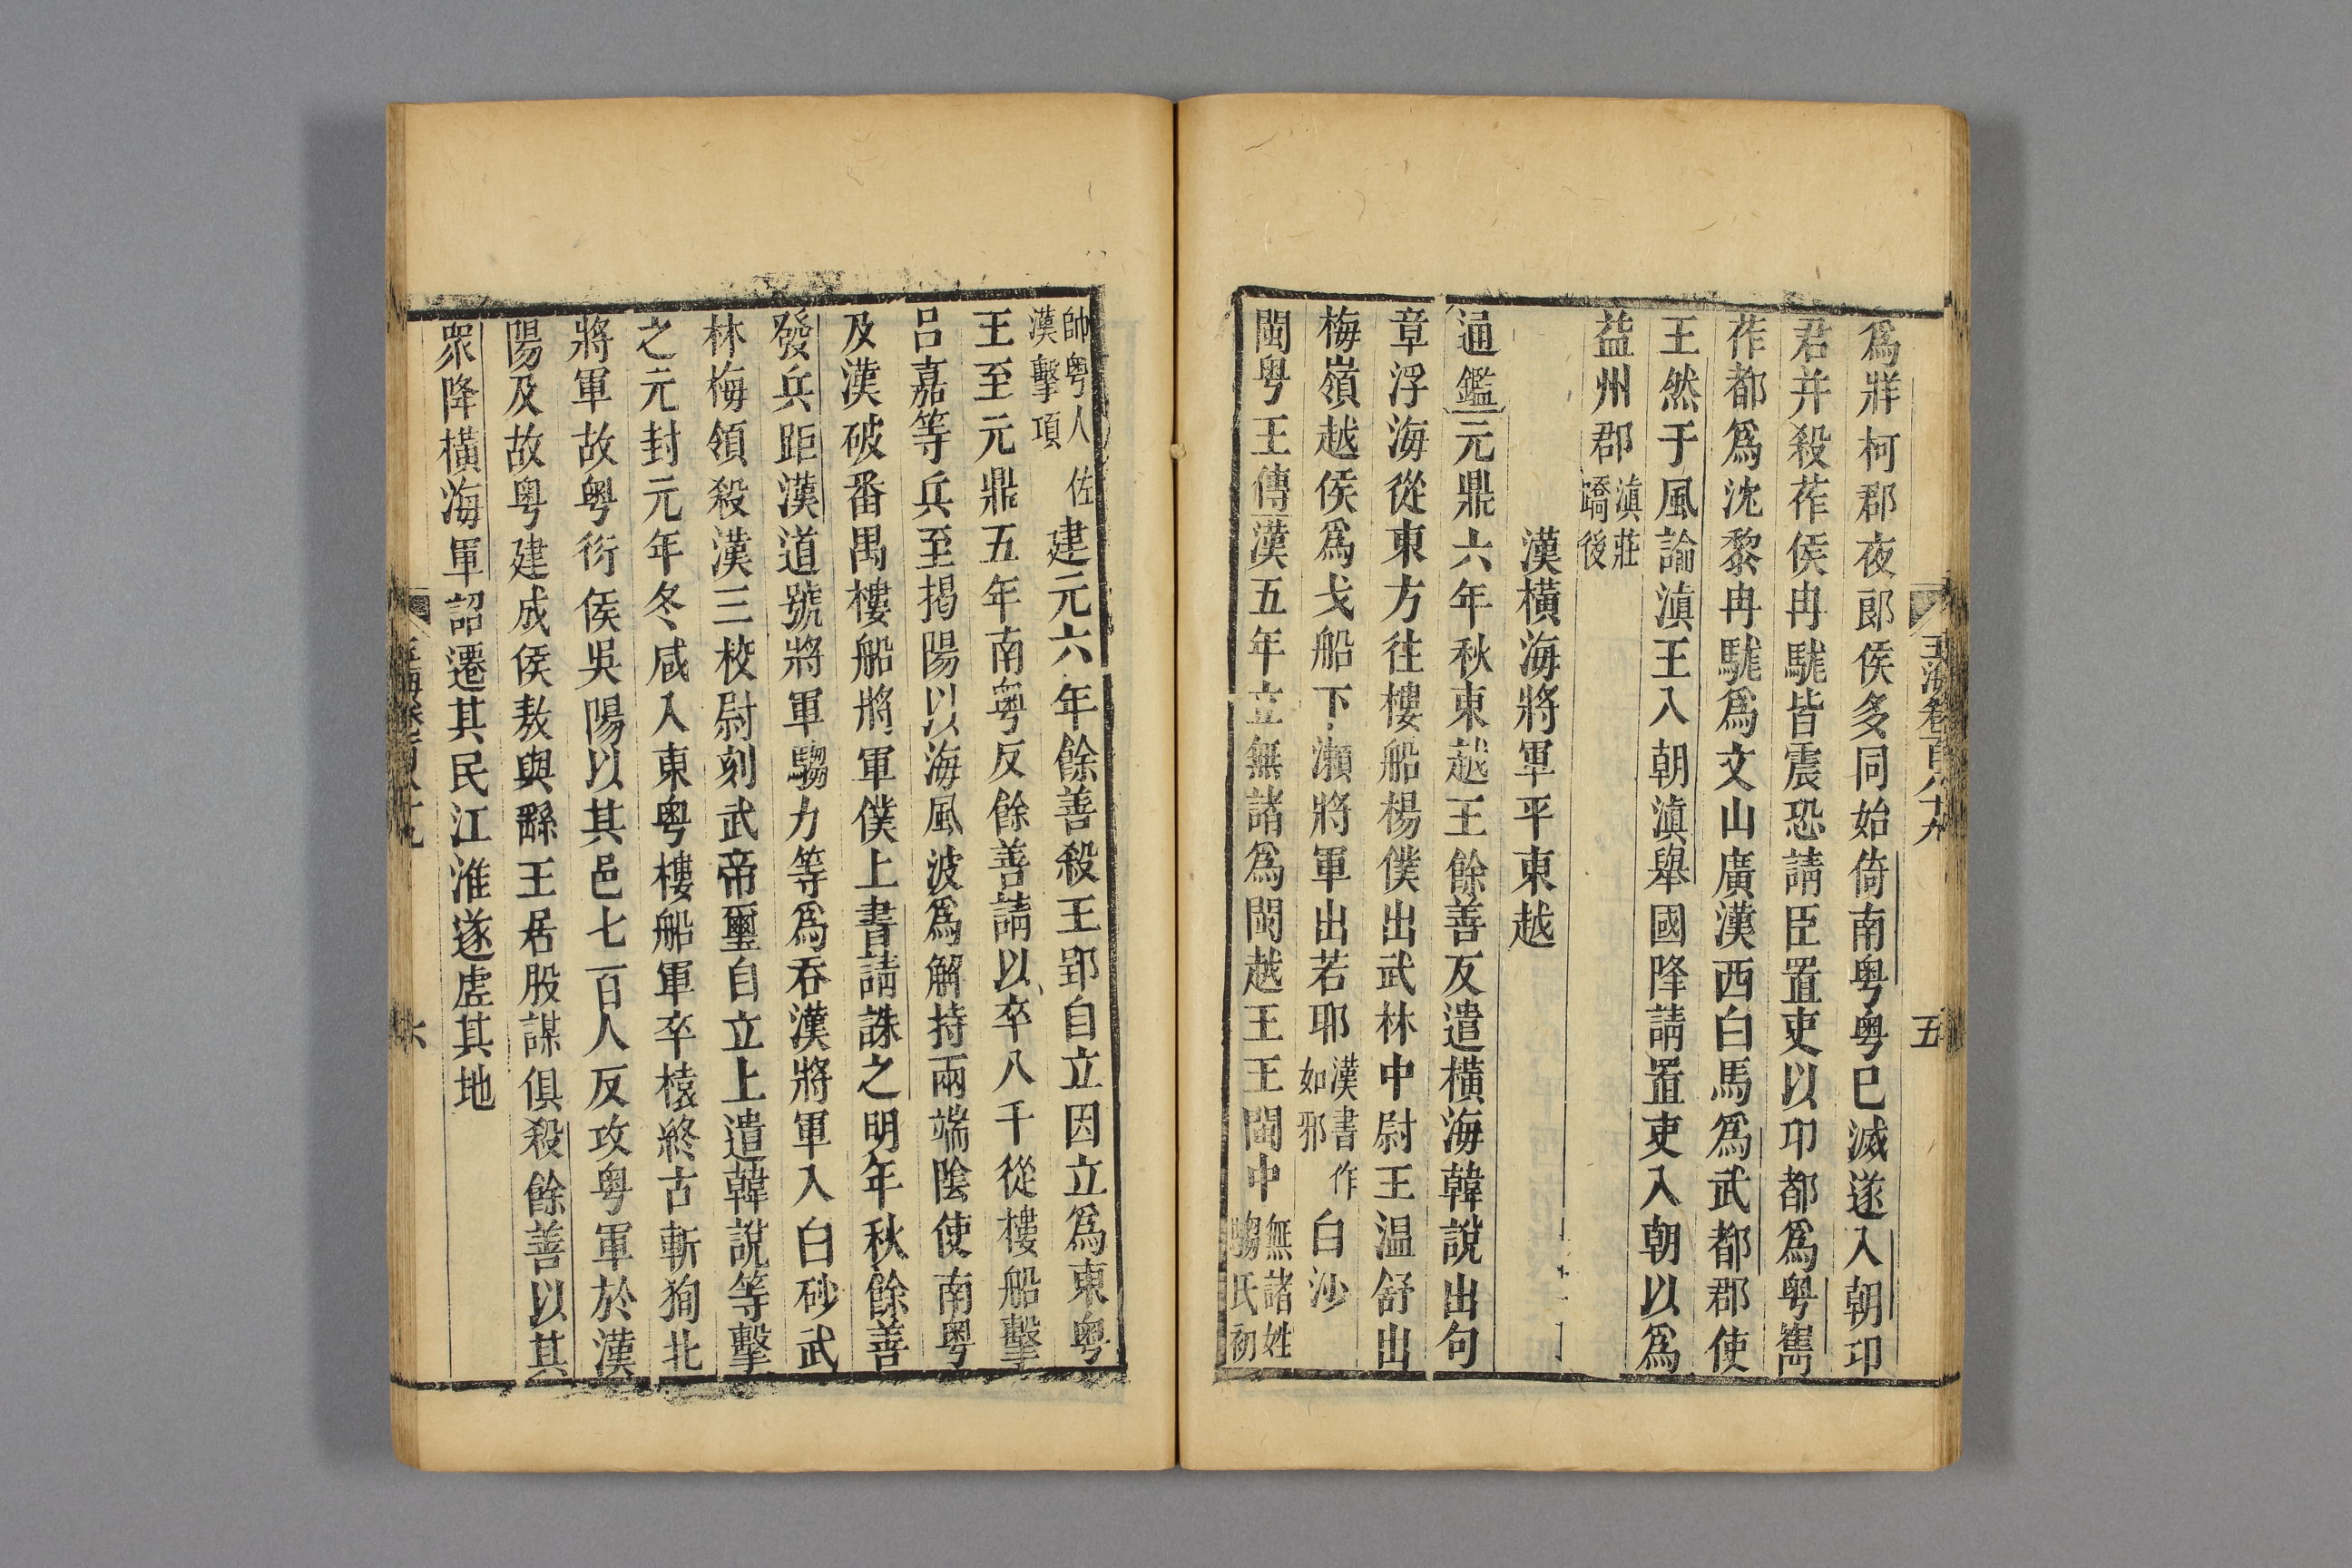 爲牂柯郡夜郎侯多同始倚南粤粤已滅遂入朝卭
君并殺莋侯冉駹皆震恐請臣置吏以卭都爲粤巂
莋都爲沈黎冉駹爲文山廣漢西白馬爲武都郡使
王然于風諭滇王入朝滇舉國降請置吏入朝以爲
益州郡滇莊蹻後
漢橫海將軍平東越
通鑑元鼎六年秋東越王餘善反遣橫海韓說出句
章浮海從東方往樓船楊僕出武林中尉王温舒出
梅嶺越侯爲戈船下瀨將軍出若耶漢書作如邪白沙
閩粤王傳漢五年立無諸爲閩越王王閩中無諸姓騶氏初
帥粤人佐漢擊項建元六年餘善殺王郢自立因立爲東粤
王至元鼎五年南粤反餘善請以卒八千從樓船擊
吕嘉等兵至揭陽以海風波爲解持兩端陰使南粤
及漢破番禺樓船將軍僕上書請誅之明年秋餘善
發兵距漢道號將軍騶力等爲吞漢將軍入白砂武
林梅領殺漢三校尉刻武帝璽自立上遣韓說等擊
之元封元年冬咸入東粤樓船軍卒榬終古斬狥北
將軍故粤衍侯吳陽以其邑七百人反攻粤軍於漢
陽及故粤建成侯敖與繇王居股謀俱殺餘善以其
衆降橫海軍詔遷其民江淮遂虛其地
玉海卷百八十九
五
六